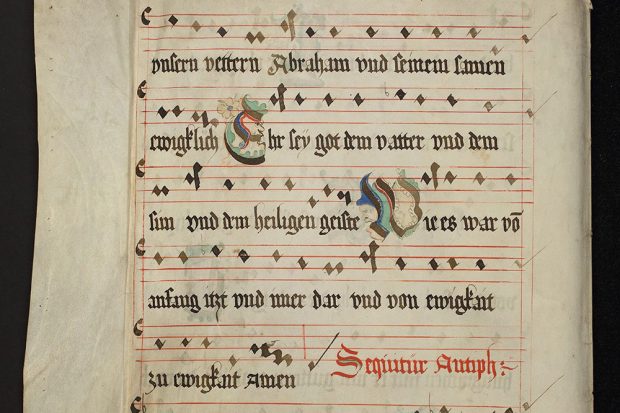 vnsern vettern Abraham vnd seinem samen
ewigklich Ehr sey got dem vatter vnd dem
sun vnd dem heiligen geiste Wie es war vō
anfang itzt vnd imer dar vnd von ewigkait
zu ewigkait Amen Sequitur Antiph: